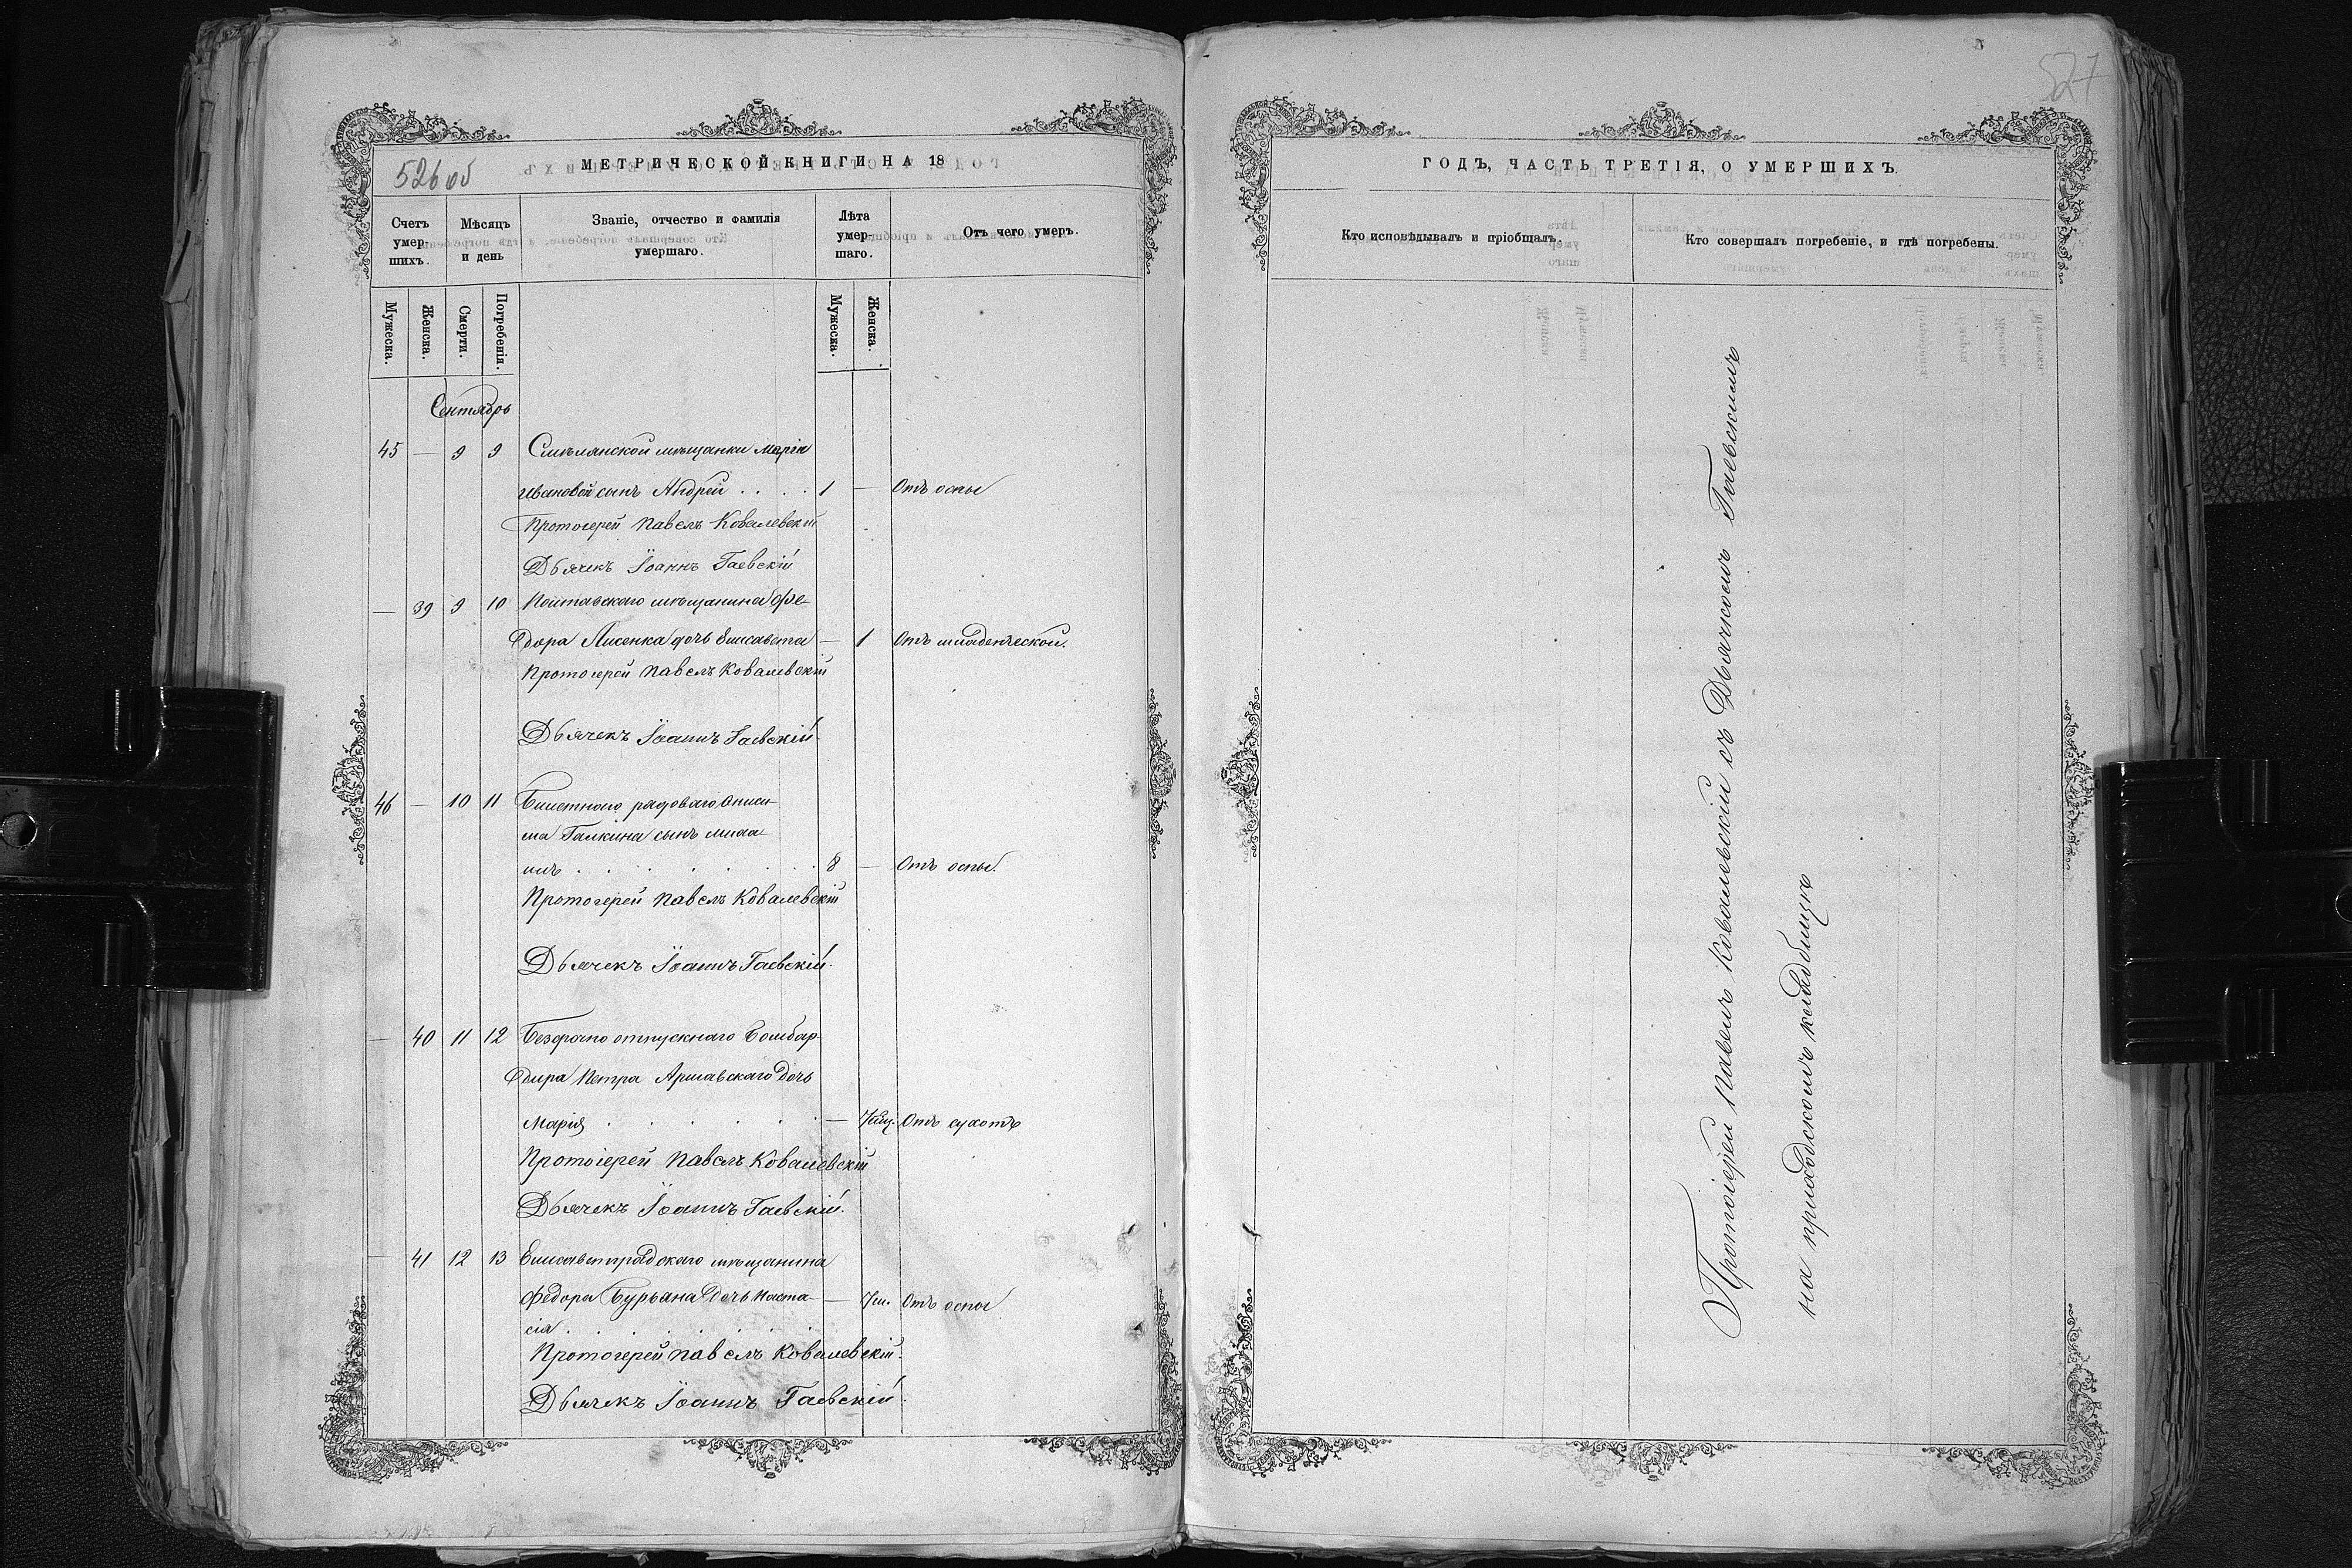 526 об
МЕТРИЧЕСКОЙ КНИГИ НА 18
Счетъ умер- шихъ.
Мѣсяцъ и день
Званіе, отчество и фамилія умершаго.
Лѣта умер- шаго.
Отъ чего умеръ.
Мужеска.
Женска.
Смерти.
Погребенія.
Мужеска.
Женска.
Сентябрь
45 — 9 9 Смѣлянской мѣщанки Маріи
Ивановой сынъ Андрей . . . . 1 — Отъ оспы
Протоіерей Павелъ Ковалевскій
Дьячекъ Іоаннъ Гаевскій
— 39 9 10 Полтавскаго мѣщанина Фе-
дора Лисенка дочь Елисавета — 1 Отъ младенческой.
Протоіерей Павелъ Ковалевскій
Дьячекъ Іоаннъ Гаевскій.
46 — 10 11 Билетнаго рядовагоОниси-
ма Галкина сынъ Миха-
илъ . . . . . . . 8 — Отъ оспы.
Протоіерей Павелъ Ковалевскій
Дьячекъ Іоаннъ Гаевскій.
— 40 11 12 Безсрочно отпускнаго Бомбар-
дира Петра Аршавскаго дочь
Марія . . . . . . — Отъ сухотъ
Протоіерей Павелъ Ковалевскій
Дьячекъ Іоаннъ Гаевскій.
— 41 12 13 Елисаветградскаго мѣщанина
Федора Бурьяна дочь Наста- — 7м. Отъ оспы
сія . . . . . . .
Протоіерей Павелъ Ковалевскій.
Дьячекъ Іоаннъ Гаевскій.
527
ГОДЪ, ЧАСТЬ ТРЕТІЯ, О УМЕРШИХЪ.
Кто исповѣдывалъ и пріобщалъ.
Кто совершалъ погребеніе, и гдѣ погребены.
Протоіерей Павелъ Ковалевскій съ Дьячкомъ Гаевскимъ
на приходскомъ кладбищѣ